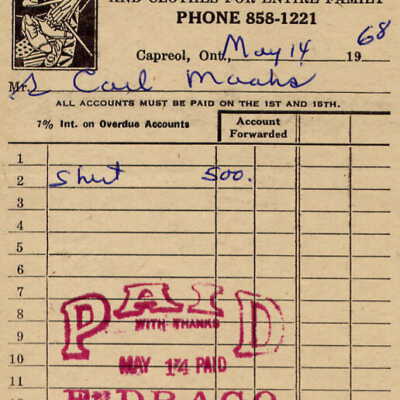 AND CLOTHES FOR ENTIRE FAMILY
PHONE 858-1221
Capreol, Ont., May 14 1968
Mr. Carl Maahs
ALL ACCOUNTS MUST BE PAID ON THE 1ST AND 15TH.
7% Int. on Overdue Accounts
Account Forwarded
1
2 Shirt 500.
3
4
5
6
7
8
9
10
11
PAID
WITH THANKS
MAY 14 PAID
DRAGO